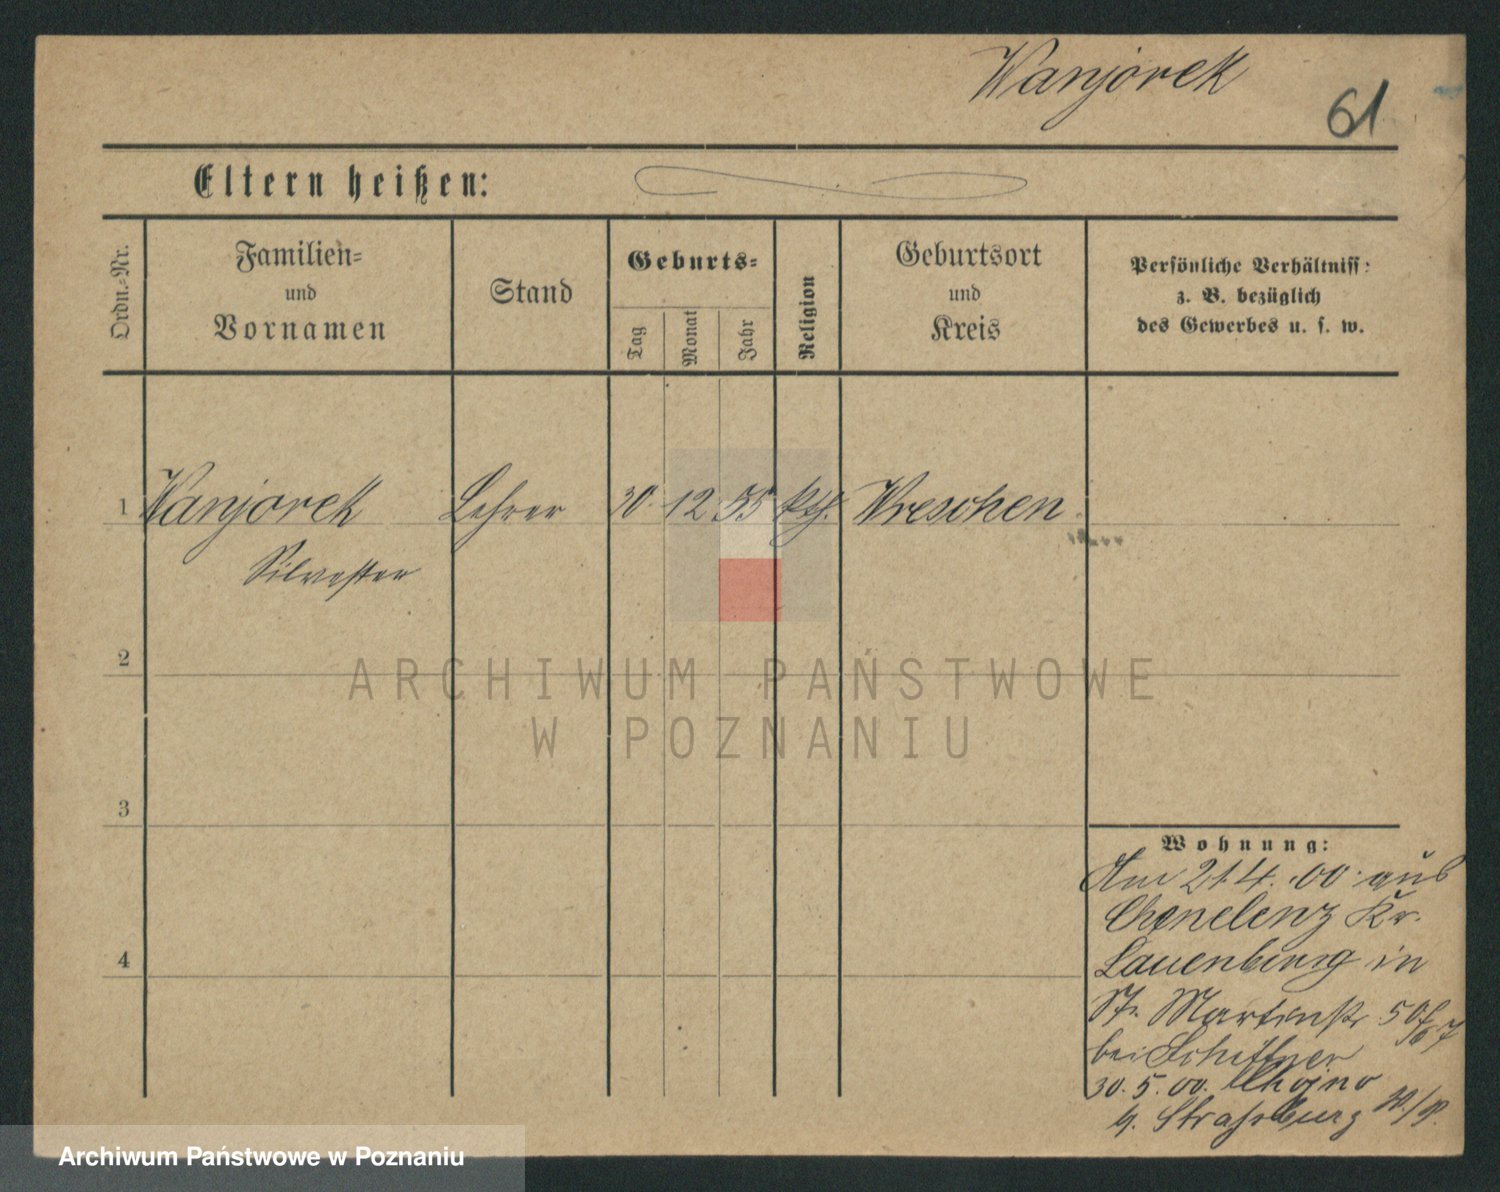 Wanjorek
61
Eltern heißen:
Ordn.-Nr.
Familien-
und
Vornamen
Stand
Geburts-
Tag
Monat
Jahr
Religion
Geburtsort
und
Kreis
Persönliche Verhältniss:
z. B. bezüglich
des Gewerbes u. s. w.
1 Wanjorek Lehrer 30. 12 55 kth. Wreschen
Silvester
2
ARCHIWUM PAŃSTWOWE
W POZNANIU
3
4
Wohnung:
Am 21.4.00. aus
Kr.
Lauenburg in
St. Martinstr. 50
bei
30.5.00. Chojno
b. Strassburg W/P.
Archiwum Państwowe w Poznaniu